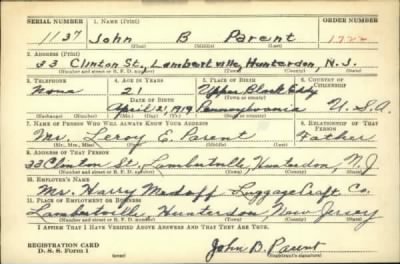 SERIAL NUMBER 1. NAME (Print) ORDER NUMBER
1137 John B Parent 1722
(First) (Middle) (Last)
2. ADDRESS (Print)
33 Clinton St., Lambertville, Hunterdon, N.J.
(Number and street or R. F. D. number) (Town) (County) (State)
3. TELEPHONE 4. AGE IN YEARS 5. PLACE OF BIRTH 6. COUNTRY OF CITIZENSHIP
None 21 Upper Black Eddy
DATE OF BIRTH (Town or county)
April 21, 1919 Pennsylvania U.S.A.
(Exchange) (Number) (Mo.) (Day) (Yr.) (State or country)
7. NAME OF PERSON WHO WILL ALWAYS KNOW YOUR ADDRESS 8. RELATIONSHIP OF THAT PERSON
Mr. Leroy E. Parent Father
(Mr., Mrs., Miss) (First) (Middle) (Last)
9. ADDRESS OF THAT PERSON
33 Clinton St. Lambertville, Hunterdon, N.J
(Number and street or R. F. D. number) (Town) (County) (State)
10. EMPLOYER'S NAME
Mr. Harry Luggage Craft Co.
11. PLACE OF EMPLOYMENT OR BUSINESS
Lambertville, Hunterdon, New Jersey
(Number and street or R. F. D. number) (Town) (County) (State)
I AFFIRM THAT I HAVE VERIFIED ABOVE ANSWERS AND THAT THEY ARE TRUE.
REGISTRATION CARD
D. S. S. Form 1
John B. Parent
(Registrant's signature)